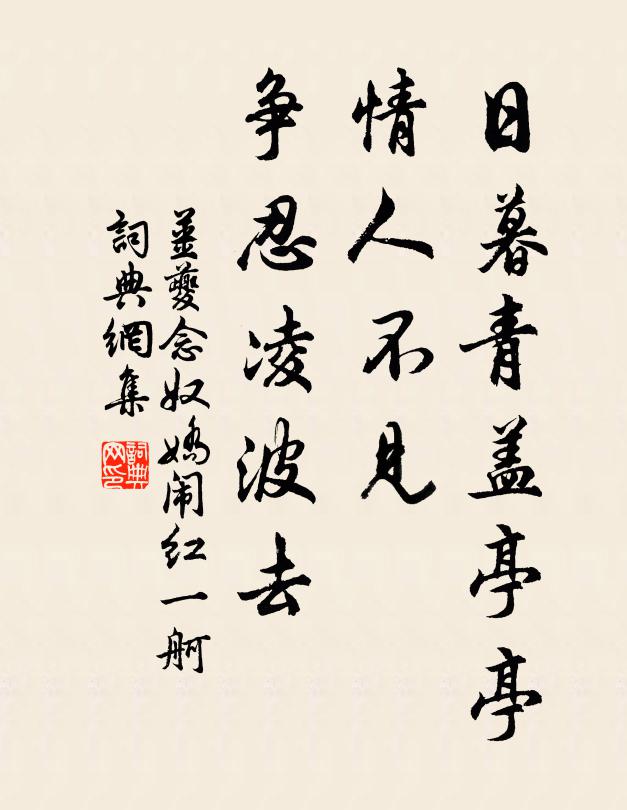 日暮青盖亭亭
情人不见
争忍凌波去
姜夔念奴嬌闹红一舸
詞典網集
詞典网印